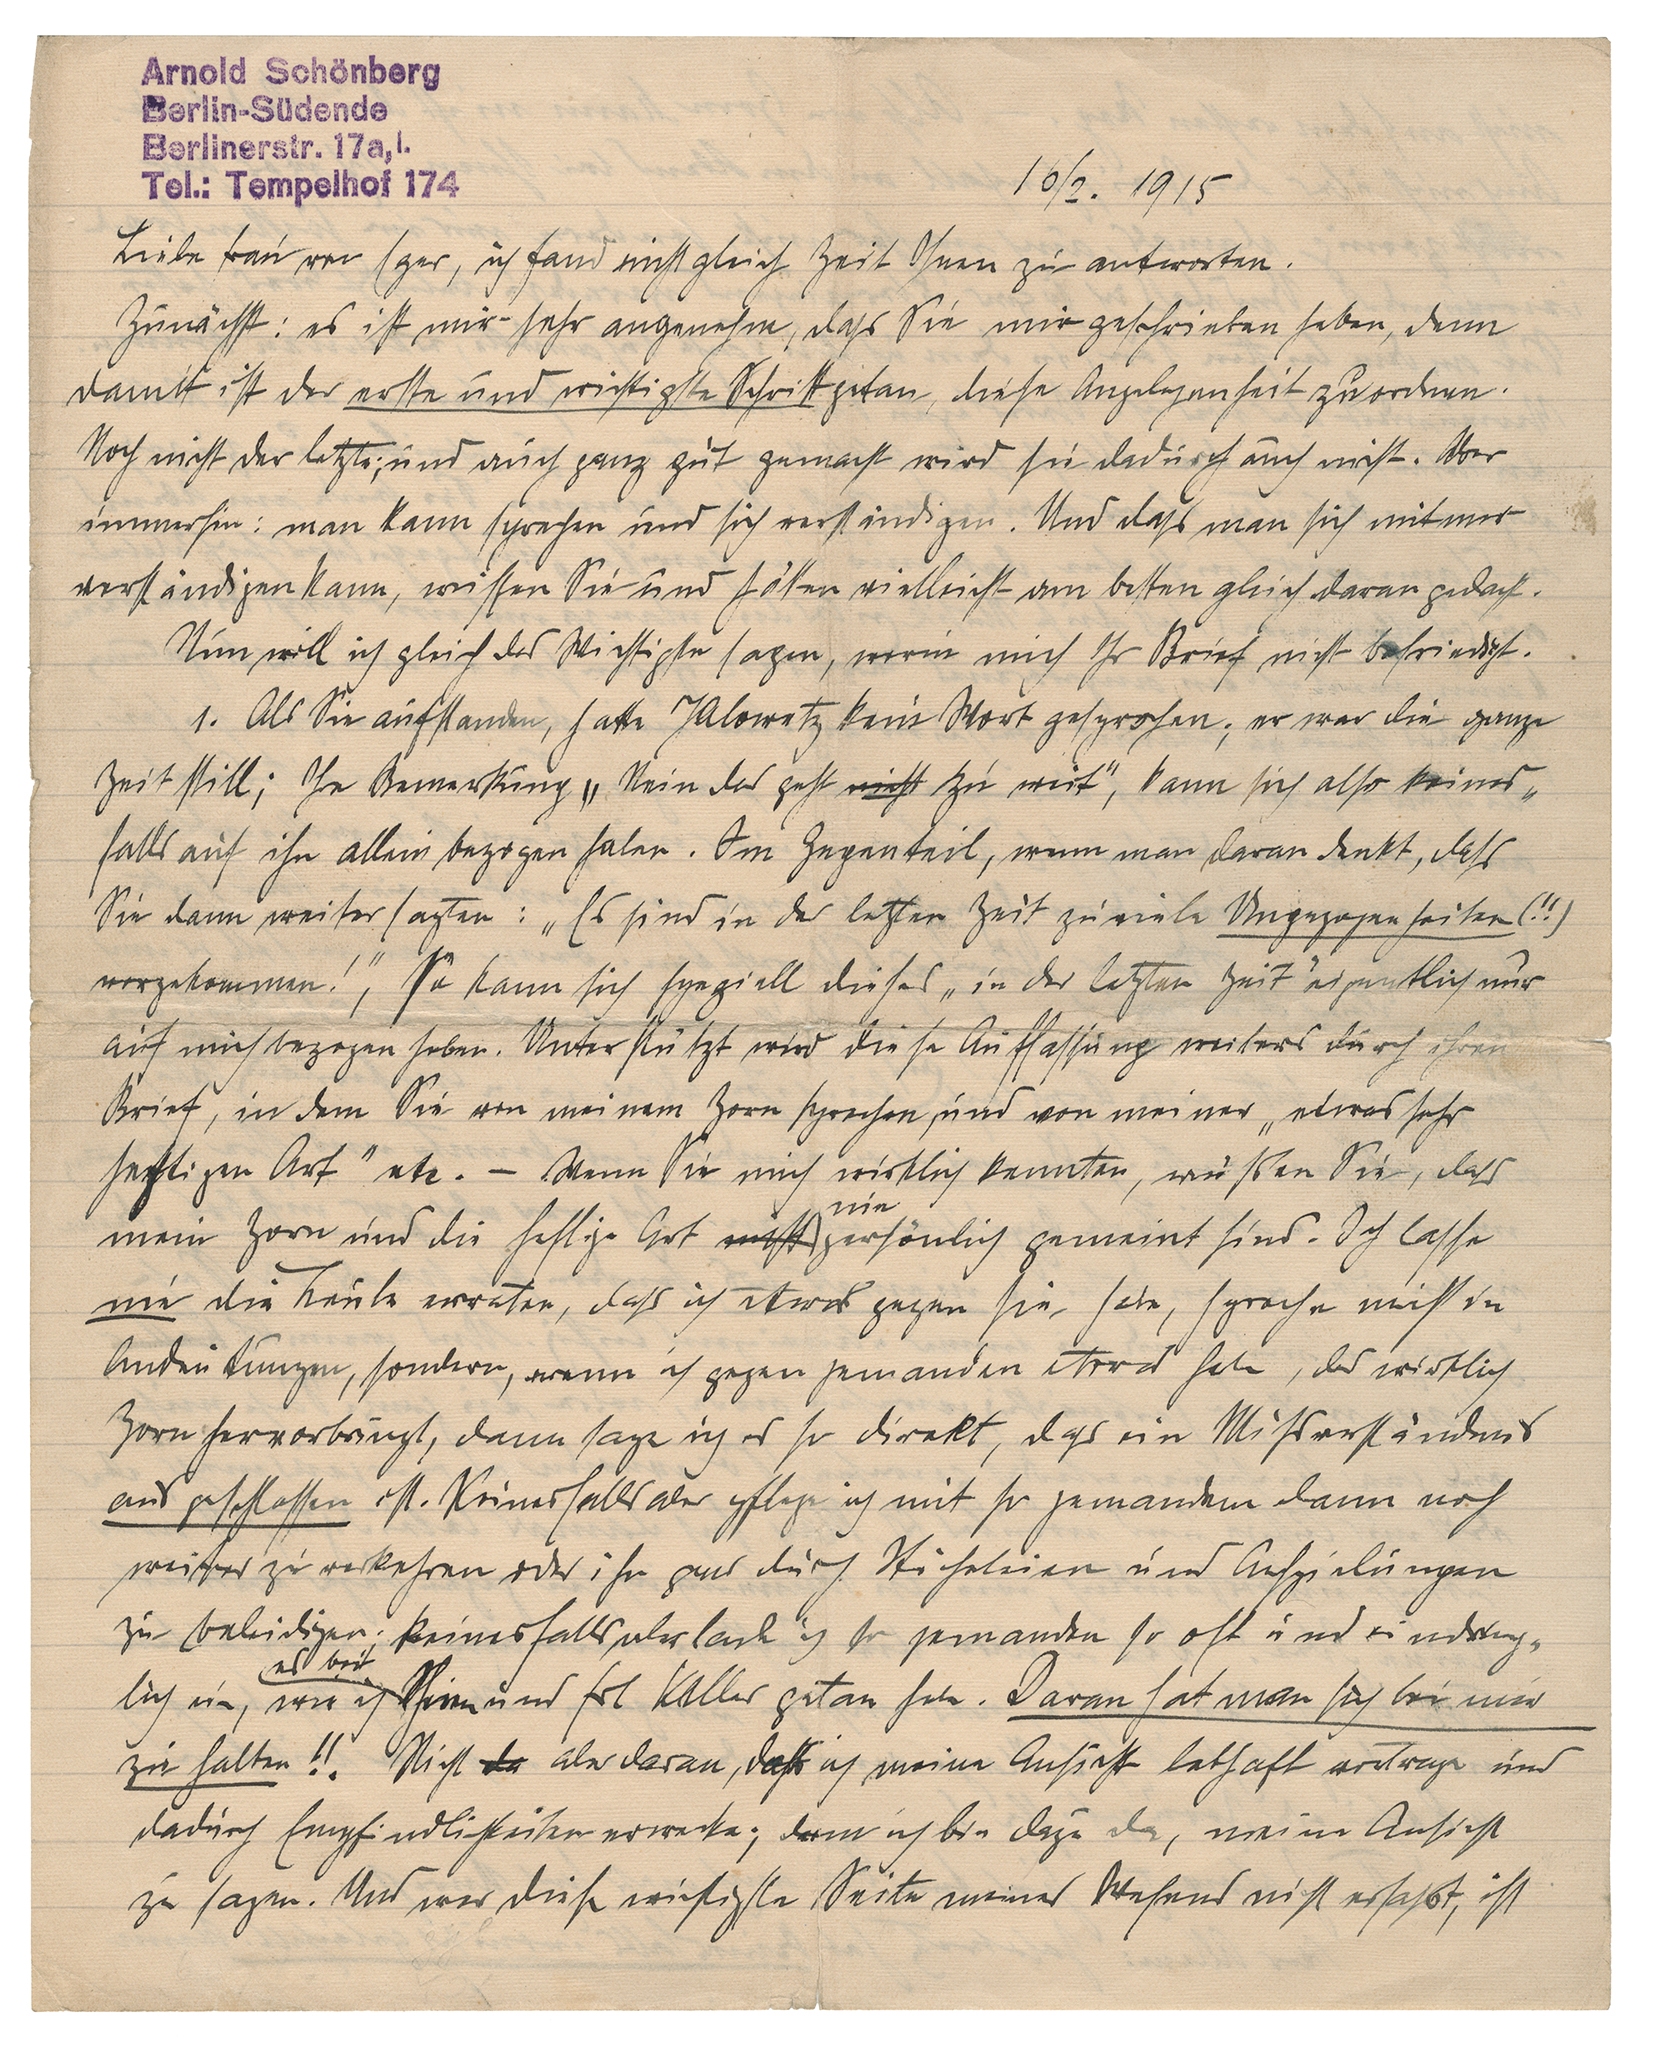 Arnold Schönberg
Berlin-Südende
Berlinerstr. 17a, I.
Tel.: Tempelhof 174
16/2. 1915
Liebe Frau von ich fand nicht gleich Zeit Ihnen zu antworten.
Zunächst: es ist mir sehr angenehm, dass Sie mir geschrieben haben, denn
damit ist der erste und wichtigste Schritt getan, diese Angelegenheit zu ordnen.
Noch nicht der letzte; und auch ganz gut gemacht wird sie dadurch auch nicht. Aber
immerhin: man kann sprechen und sich verständigen. Und dass man sich mit mir
verständigen kann, wissen Sie und hätten vielleicht am besten gleich daran gedacht.
Nun will ich gleich das Wichtigste sagen, worin mich Ihr Brief nicht befriedigt.
1. Als Sie aufstanden, hatte Jalowetz kein Wort gesprochen; er war die ganze
Zeit still; Ihre Bemerkung „Nein das geht nicht zu weit", kann sich also keines-
falls auf ihn allein bezogen haben. Im Gegenteil, wenn man daran denkt, dass
Sie dann weiter sagten: „Es sind in der letzten Zeit zuviele Ungezogenheiten (!!)
vorgekommen!", so kann sich speziell dieses „in der letzten Zeit" eigentlich nur
auf mich bezogen haben. Unterstützt wird diese Auffassung weiters durch ihren
Brief, in dem Sie von meinem Zorn sprechen, und von meiner „etwas sehr
heftigen Art" etc. – Wenn Sie mich wirklich kennten, wüßten Sie, dass
mein Zorn und die heftige Art nicht nie persönlich gemeint sind. Ich lasse
nie die Leute erraten, dass ich etwas gegen sie habe, spreche nicht in
Andeutungen, sondern, wenn ich gegen jemanden etwas habe, das wirklich
Zorn hervorbringt, dann sage ich es so direkt, dass ein Missverständnis
ausgeschlossen ist. Keinesfalls aber pflege ich mit so jemandem dann noch
weiter zu verkehren oder ihn gar durch Sticheleien und Anspielungen
zu beleidigen; keinesfalls aber lade ich so jemanden so oft und eindring-
lich ein, wie ich es bei Ihnen und Frl Keller getan habe. Daran hat man sich bei mir
zu halten!!. Nicht da aber daran, dass ich meine Ansicht lebhaft vortrage und
dadurch Empfindlichkeiten erwecke; denn ich bin dazu da, meine Ansicht
zu sagen. Und wer diese wichtigste Seite meines Wesens nicht erfasst, ist